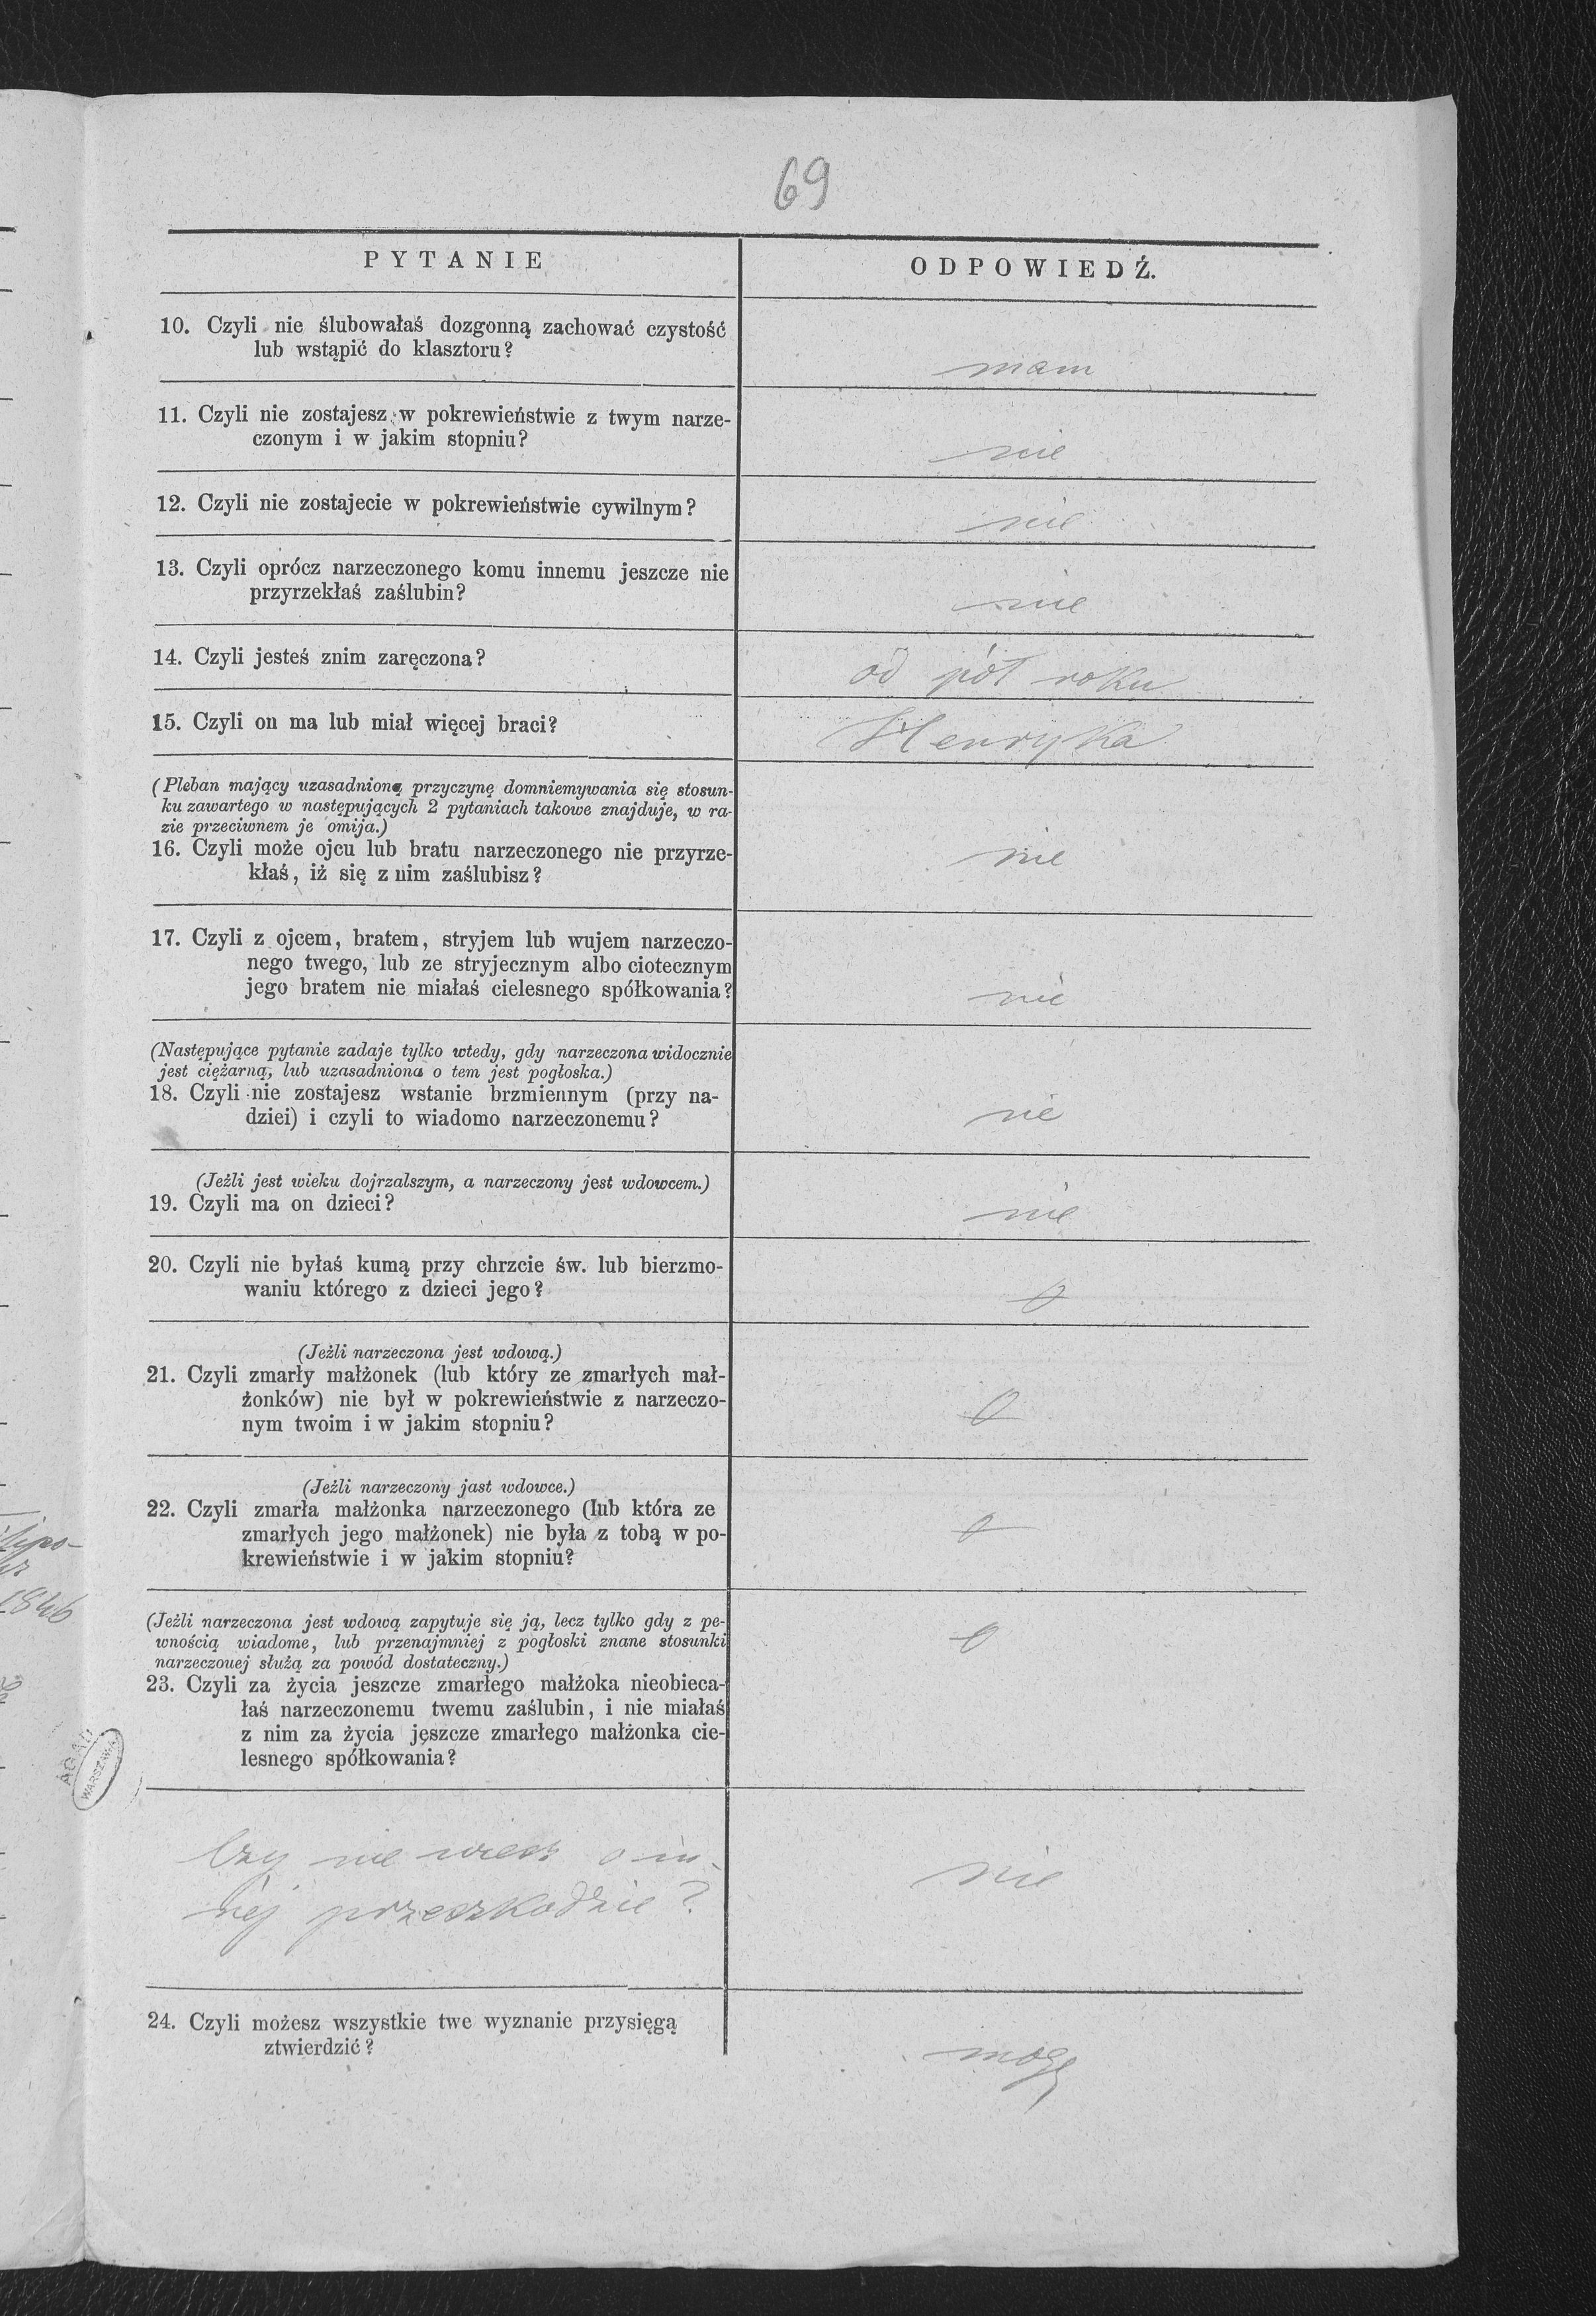 69
PYTANIE
ODPOWIEDŹ.
10. Czyli nie ślubowałaś dozgonną zachować czystość
lub wstąpić do klasztoru?
mam
11. Czyli nie zostajesz w pokrewieństwie z twym narze-
czonym i w jakim stopniu?
nie
12. Czyli nie zostajecie w pokrewieństwie cywilnym?
nie
13. Czyli oprócz narzeczonego komu innemu jeszcze nie
przyrzekłaś zaślubin?
nie
14. Czyli jesteś znim zaręczona?
od pół roku
15. Czyli on ma lub miał więcej braci?
Henryka
(Pleban mający uzasadnioną przyczynę domniemywania się stosun-
ku zawartego w następujących 2 pytaniach takowe znajduje, w ra-
zie przeciwnem je omija.)
16. Czyli może ojcu lub bratu narzeczonego nie przyrze-
kłaś, iż się z nim zaślubisz?
nie
17. Czyli z ojcem, bratem, stryjem lub wujem narzeczo-
nego twego, lub ze stryjecznym albo ciotecznym
jego bratem nie miałaś cielesnego spółkowania?
nie
(Następujące pytanie zadaje tylko wtedy, gdy narzeczona widocznie
jest ciężarną, lub uzasadniona o tem jest pogłoska.)
18. Czyli nie zostajesz wstanie brzmiennym (przy na-
dziei) i czyli to wiadomo narzeczonemu?
nie
(Jeżli jest wieku dojrzalszym, a narzeczony jest wdowcem.)
19. Czyli ma on dzieci?
nie
20. Czyli nie byłaś kumą przy chrzcie św. lub bierzmo-
waniu którego z dzieci jego?
0
(Jeżli narzeczona jest wdową.)
21. Czyli zmarły małżonek (lub który ze zmarłych mał-
żonków) nie był w pokrewieństwie z narzeczo-
nym twoim i w jakim stopniu?
0
(Jeżli narzeczony jast wdowce.)
22. Czyli zmarła małżonka narzeczonego (lub która ze
zmarłych jego małżonek) nie była z tobą w po-
krewieństwie i w jakim stopniu?
0
(Jeżli narzeczona jest wdową zapytuje się ją, lecz tylko gdy z pe-
wnością wiadome, lub przenajmniej z pogłoski znane stosunki
narzeczouej służą za powód dostateczny.)
0
23. Czyli za życia jeszcze zmarłego małżoka nieobieca-
łaś narzeczonemu twemu zaślubin, i nie miałaś
z nim za życia jęszcze zmarłego małżonka cie-
lesnego spółkowania?
Czy nie wiesz o in-
nej przeszkodzie?
nie
24. Czyli możesz wszystkie twe wyznanie przysięgą
ztwierdzić?
mogę
1846
AGAD
WARSZAWA